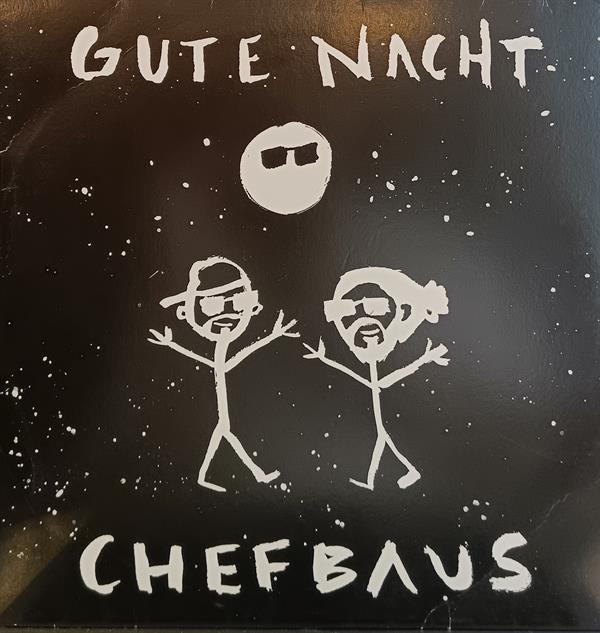 GUTE NACHT
CHEFBAUS